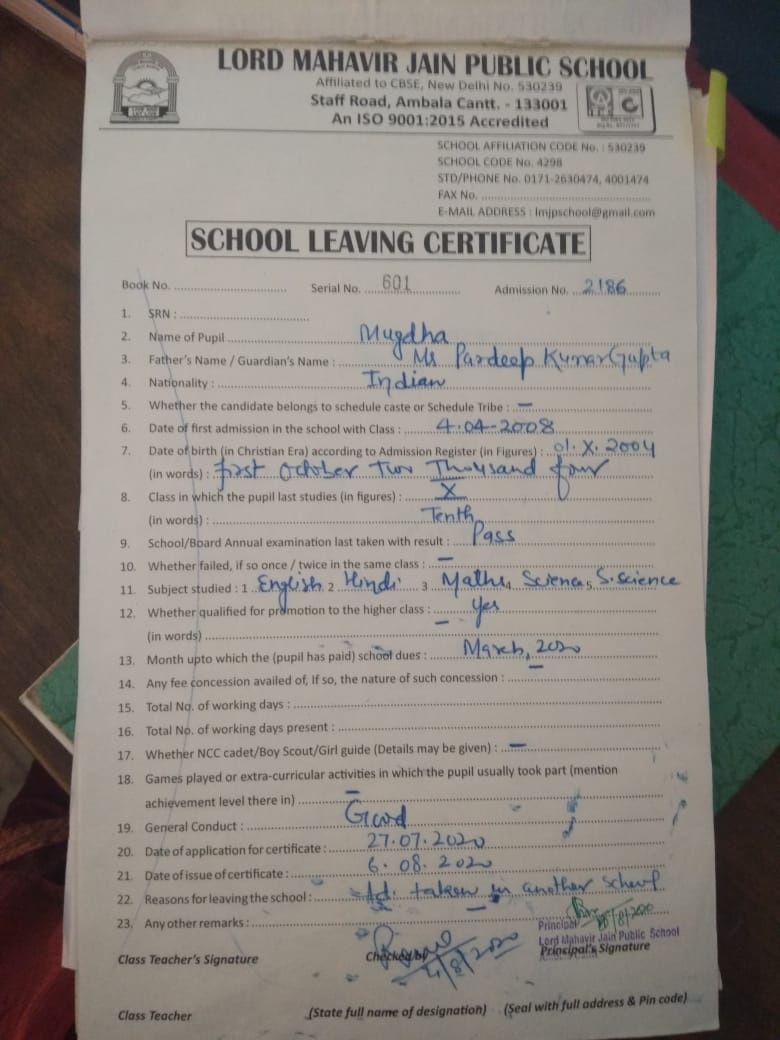 LORD MAHAVIR JAIN PUBLIC SCHOOL
Affiliated to CBSE, New Delhi No. 530239
Staff Road, Ambala Cantt. - 133001
An ISO 9001:2015 Accredited
SCHOOL AFFILIATION CODE No. : 530239
SCHOOL CODE No. 4298
STD/PHONE No. 0171-2630474, 4001474
FAX No.
E-MAIL ADDRESS : lmjpschool@gmail.com
SCHOOL LEAVING CERTIFICATE
Book No. Serial No. 601 Admission No. 2186
1. SRN :
2. Name of Pupil Mugdha
3. Father's Name / Guardian's Name : Mr Pardeep Kumar Gupta
4. Nationality : Indian
5. Whether the candidate belongs to schedule caste or Schedule Tribe : —
6. Date of first admission in the school with Class : 4.04-2008
7. Date of birth (in Christian Era) according to Admission Register (in Figures) : 01. X. 2004
(in words) : first October Two Thousand four
8. Class in which the pupil last studies (in figures) : X
(in words) : Tenth
9. School/Board Annual examination last taken with result : Pass
10. Whether failed, if so once / twice in the same class : —
11. Subject studied : 1 English 2 Hindi 3 Maths 4 Science 5 S.science
12. Whether qualified for promotion to the higher class : Yes
(in words) —
13. Month upto which the (pupil has paid) school dues : March, 2020
14. Any fee concession availed of, If so, the nature of such concession : —
15. Total No. of working days :
16. Total No. of working days present :
17. Whether NCC cadet/Boy Scout/Girl guide (Details may be given) : —
18. Games played or extra-curricular activities in which the pupil usually took part (mention
achievement level there in) —
19. General Conduct : Good
20. Date of application for certificate : 27.07.2020
21. Date of issue of certificate : 6.08.2020
22. Reasons for leaving the school : Ad. taken in another school
23. Any other remarks : —
Principal
Lord Mahavir Jain Public School
Class Teacher's Signature Checked by 4/8/2020 Principal's Signature
Class Teacher (State full name of designation) (Seal with full address & Pin code)